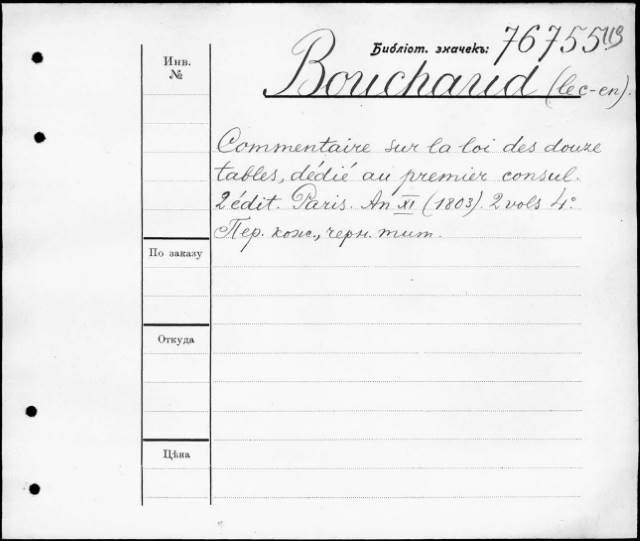 Библіот. значекъ: 76755
Инв.
№
Bouchaud (lec-en).
Commentaire sur la loi des douze
tables, dédié au premier consul.
2 édit. Paris. An XI (1803). 2 vols 4°.
Пер. кож., черн. тит.
По заказу
Откуда
Цѣна